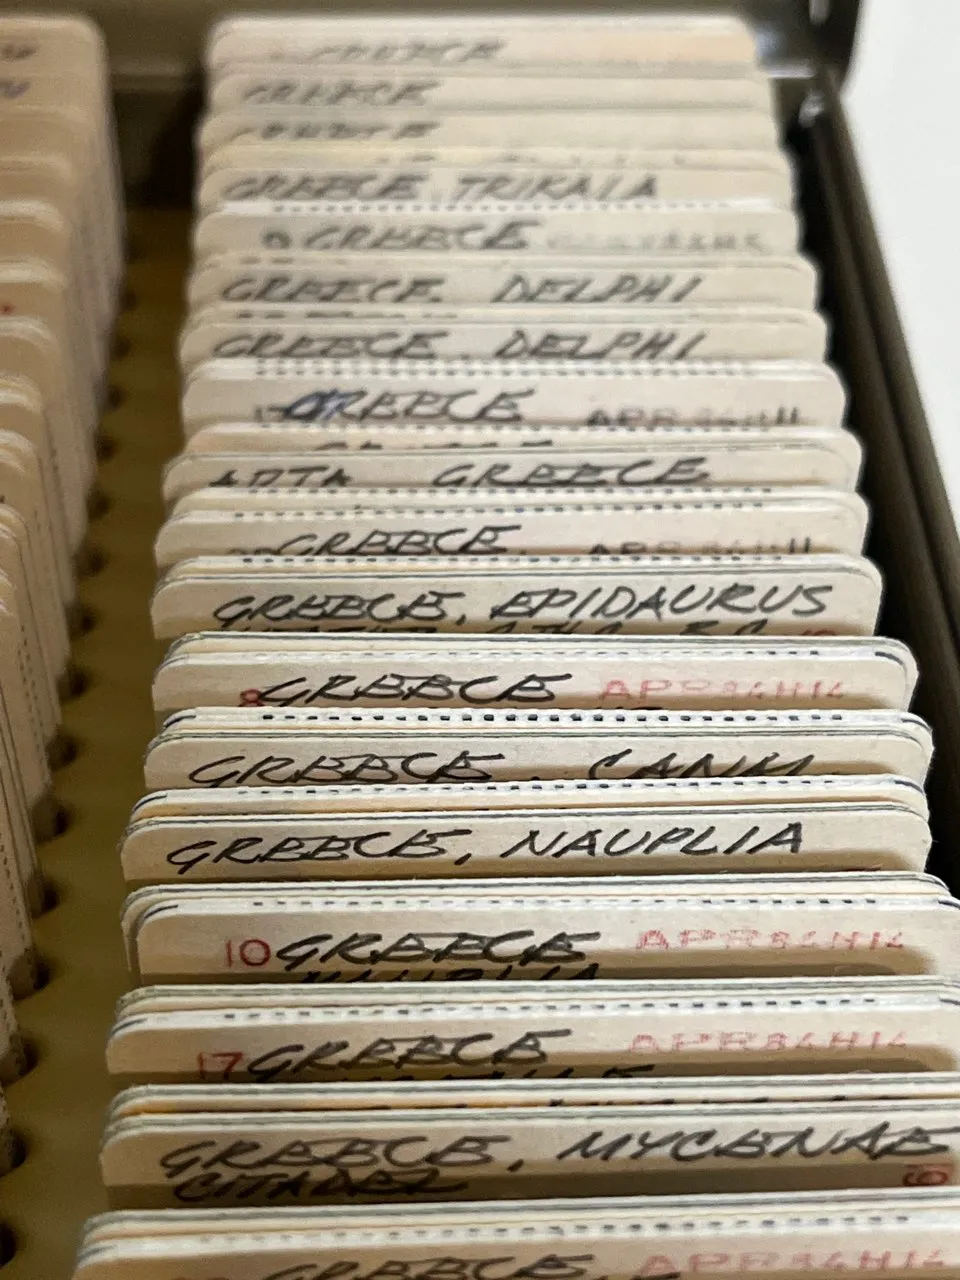 GREECE
GREECE
GREECE
GREECE TRIKALA
GREECE
GREECE, DELPHI
GREECE, DELPHI
GREECE APR 84H11
GREECE
GREECE, APR 84H11
GREECE, EPIDAURUS
8 GREECE APR84H14
GREECE,
GREECE, NAUPLIA
10 GREECE APR84H14
NAUPLIA
17 GREECE APR84H14
GREECE, MYCENAE
CITADEL
GREECE APR84H14